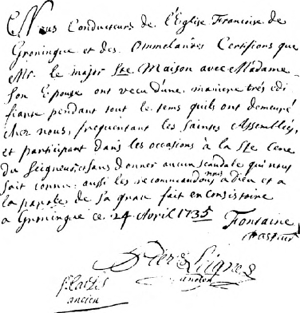 Nous Conducteurs de l'Eglise Francoise de
Groningue et des Ommelandes Certifions que
Mr. le major Ste Maison avec Madame
son Epouse ont vecu d'une maniere tres edi
fiante pendant tout le tems quils ont demeuré
chez nous, frequentant les saintes Assemblées
et participant dans les occasions a la Ste Cene
du Seigneur sans donner aucun scandale qui nous
soit connu: aussi les recommandons nous a dieu et a
la parole de sa grace fait en consistoire
a Groningue ce 24 Avril 1735 Fontaine
Pasteur
ancien
ancien